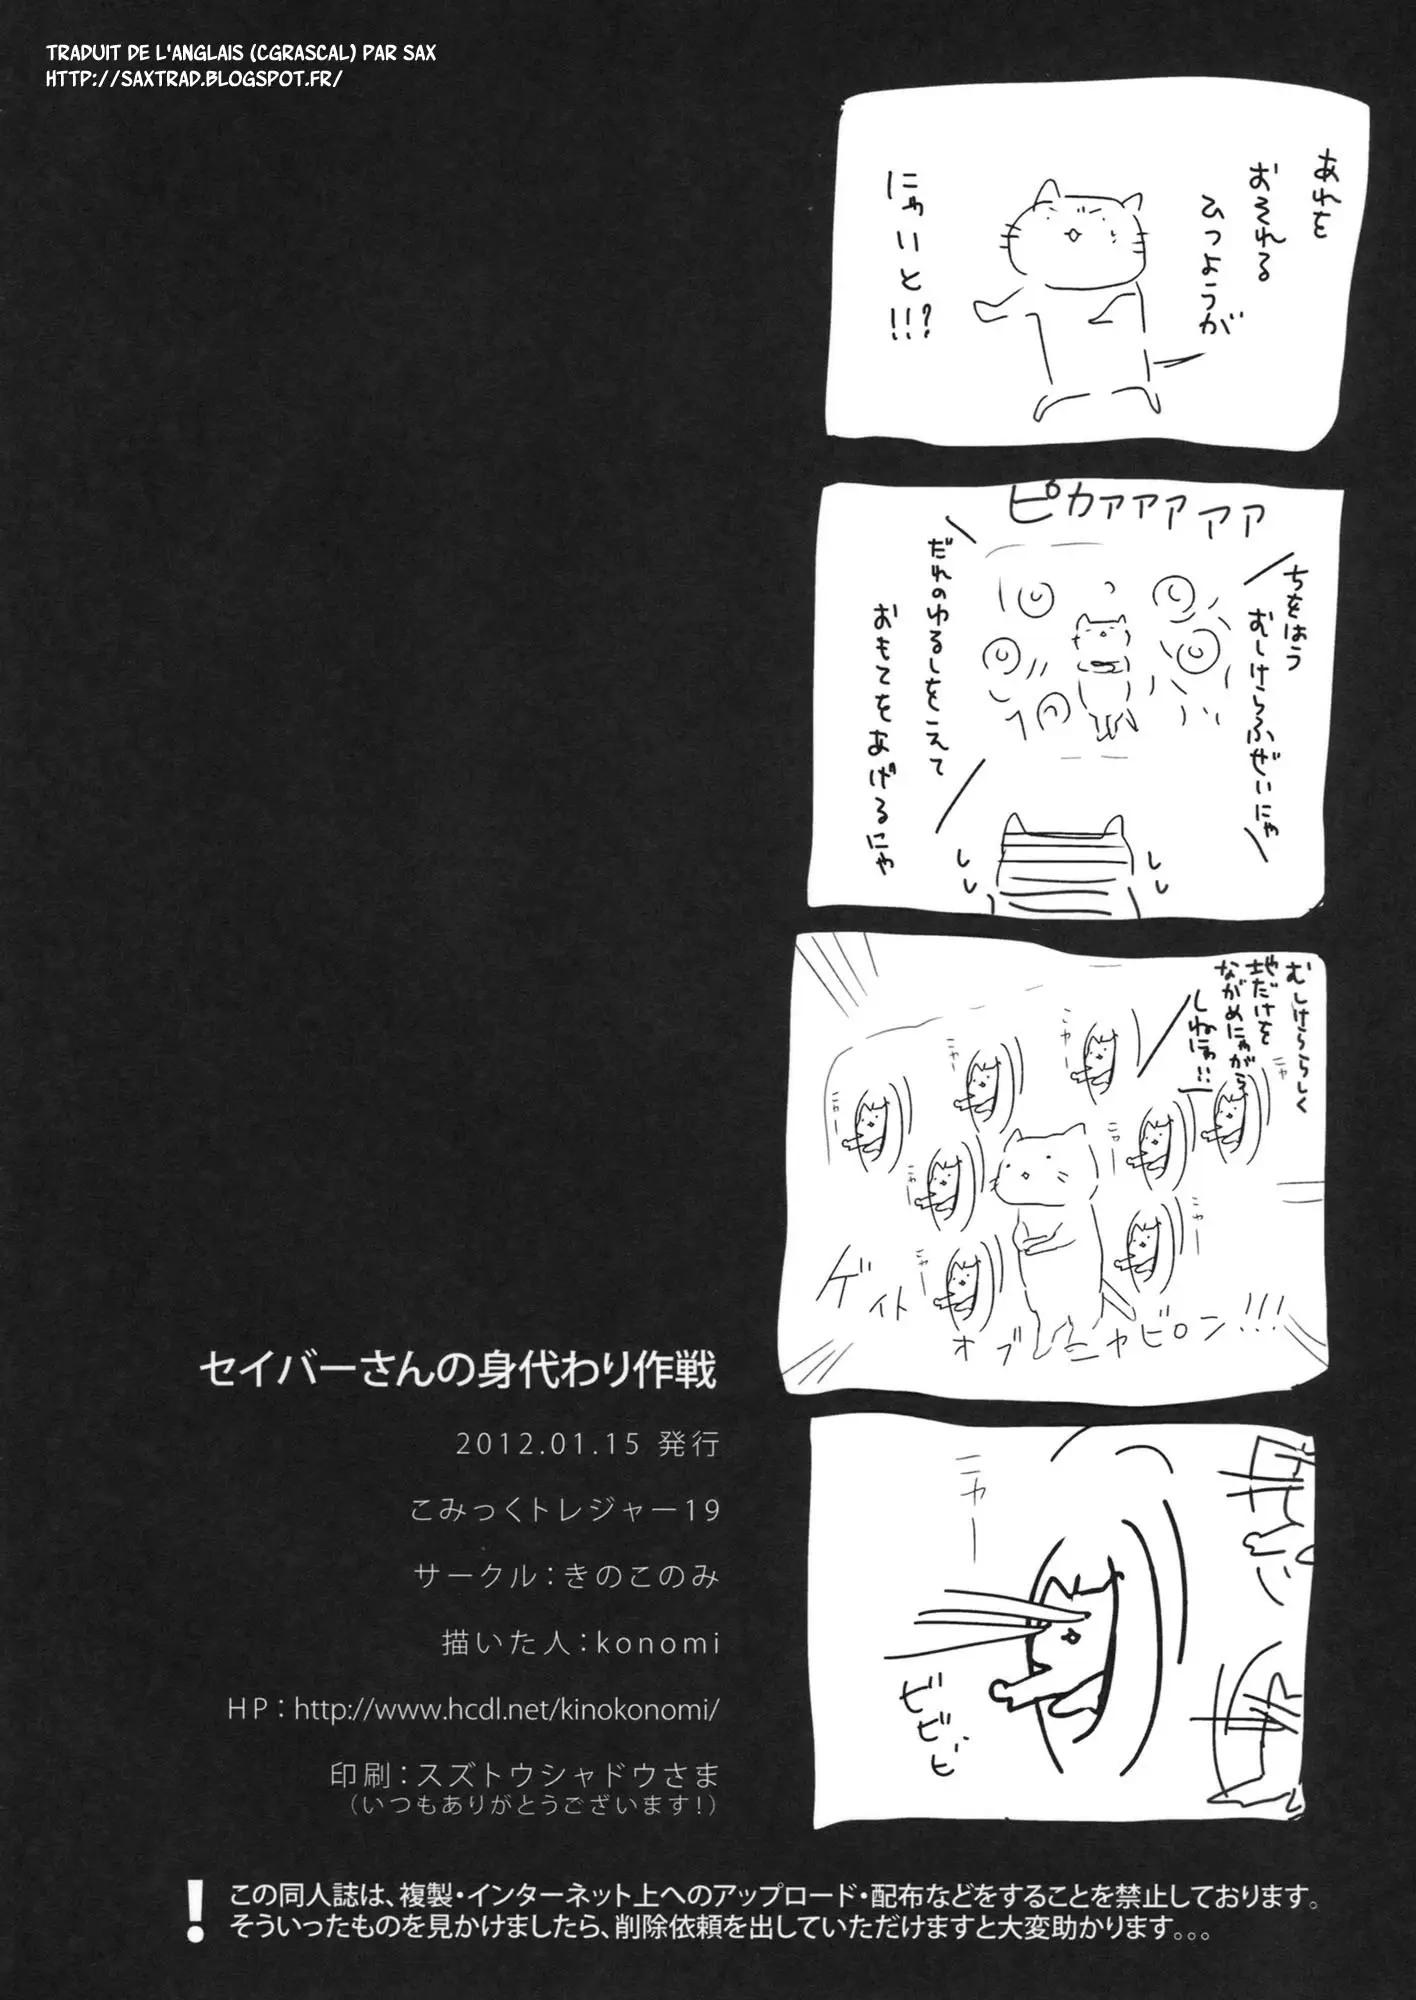 TRADUIT DE L'ANGLAIS (CGRASCAL) PAR SAX
HTTP://SAXTRAD.BLOGSPOT.FR/
あれを
おそれる
ひつようが
にゃいと!!?
ピカァァァァァ
ちをはう
むしけらふぜいにゃ
だれのゆるしをえて
おもてをあげるにゃ
むしけららしく
地だけを
ながめにゃがら
しねにゃ!!
ニャー
ニャー
ニャー
ニャー
ニャー
ニャー
ニャー
ニャー
ゲイト
オブ
ニャビロン!!!
ニャー
ビビビ
セイバーさんの身代わり作戦
2012.01.15 発行
こみっくトレジャー19
サークル：きのこのみ
描いた人：konomi
HP：http://www.hcdl.net/kinokonomi/
印刷：スズトウシャドウさま
（いつもありがとうございます！）
！この同人誌は、複製・インターネット上へのアップロード・配布などをすることを禁止しております。
そういったものを見かけましたら、削除依頼を出していただけますと大変助かります。。。